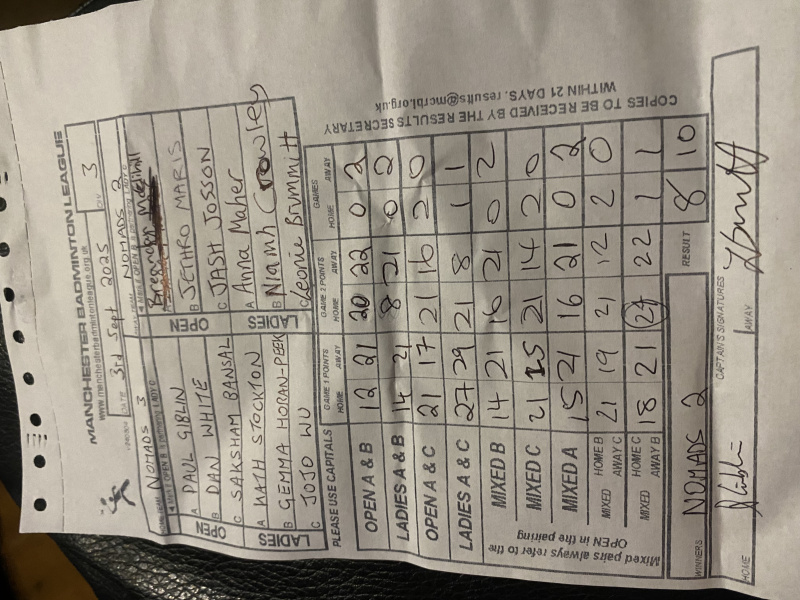 MANCHESTER BADMINTON LEAGUE
www.manchesterbadmintonleague.org.uk
DATE 3rd Sept 2025 DIV 3
HOME TEAM NOMADS 3
NOMADS 2
OPEN
A PAUL GIBLIN
B DAN WHITE
C SAKSHAM BANSAL
LADIES
A KATH STOCKTON
B GEMMA HORAN-PEEK
C JOJO WU
OPEN
A Brendan
B JETHRO MARIS
C JASH JOSSON
LADIES
A Anna Maher
B Niamh Crowley
C Leonie Brummitt
PLEASE USE CAPITALS
GAME 1 POINTS HOME AWAY
GAME 2 POINTS HOME AWAY
GAMES HOME AWAY
OPEN A & B 12 21 20 22 0 2
LADIES A & B 14 21 8 21 0 2
OPEN A & C 21 17 21 16 2 0
LADIES A & C 27 29 21 8 1 1
MIXED B 14 21 16 21 0 2
MIXED C 21 15 21 14 2 0
MIXED A 15 21 16 21 0 2
MIXED HOME B AWAY C 21 19 21 12 2 0
MIXED HOME C AWAY B 18 21 24 22 1 1
Mixed pairs always refer to the
OPEN in the pairing
WINNERS NOMADS 2 RESULT 8 10
CAPTAIN'S SIGNATURES
HOME AWAY
COPIES TO BE RECEIVED BY THE RESULTS SECRETARY
WITHIN 21 DAYS. results@mcrbl.org.uk